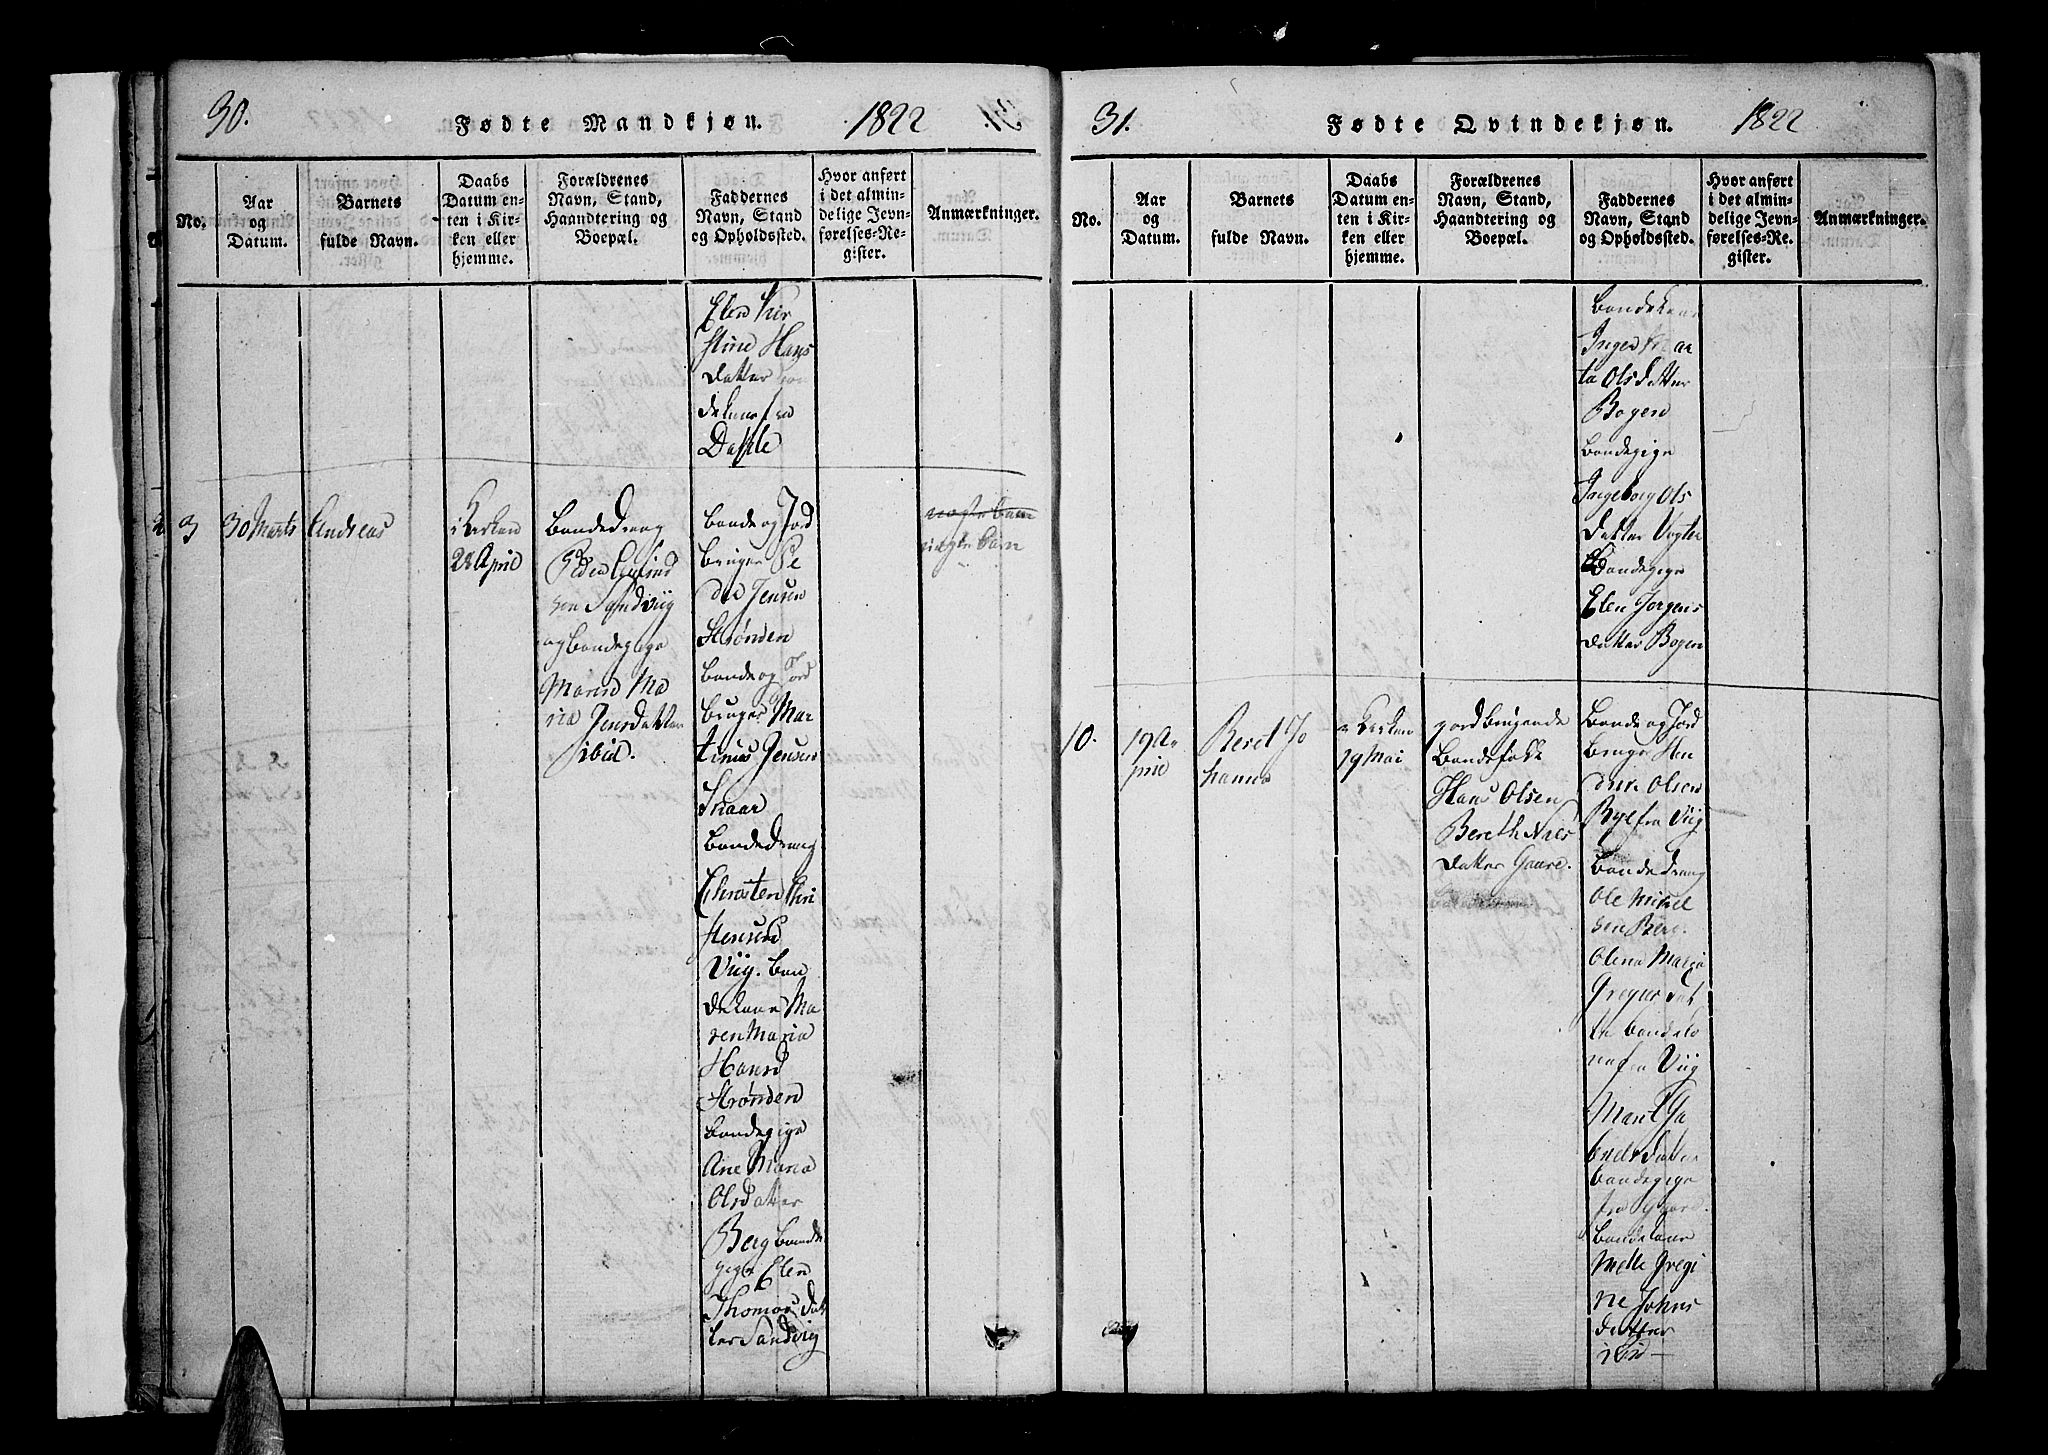 30.
Fødte Mandkjøn.
1822
No.
Aar
og
Datum.
Barnets
fulde Navn.
Daabs
Datum en-
ten i Kir-
ken eller
hjemme.
Forældrenes
Navn, Stand,
Haandtering og
Boepæl.
Faddernes
Navn, Stand
og Opholdssted.
Hvor anført
i det almin-
delige Jevn-
førelses-Re-
gister.
Anmærkninger.
Elen Kir
stine Hans
datter
Dahle
3
30 Marts
Andreas
i Kirken
28 April
Bondedreng
Peder
sen Sandviig
og bondepige
Maren Ma
ria Jensdatter
ibid.
Bonde og Jord
bruger Pe
der Jensen
Strønden
bonde og Jord
bruger Mar
tinus Jensen
Skaar
bondedreng
Christen Chri
stensen
Viig. bon
dekone Ma
ren Maria
Hansd
Strønden
bondepige
Ane Maria
Olsdatter
Berg bonde
pige Elen
Thomas dat
ter Sandvig
uægte barn
uægte barn
31.
Fødte Qvindekjøn.
1822
No.
Aar
og
Datum.
Barnets
fulde Navn.
Daabs
Datum en-
ten i Kir-
ken eller
hjemme.
Forældrenes
Navn, Stand,
Haandtering og
Boepæl.
Faddernes
Navn, Stand
og Opholdssted.
Hvor anført
i det almin-
delige Jevn-
førelses-Re-
gister.
Anmærkninger.
Bondekone
Inger Mar
ta Olsdatter
Bogen
bondepige
Ingeborg Ols
datter Vogter
Bondepige
Elen Jørgens
datter Bogen
10.
19 A
pril
Beret Jo
hanna
i Kirken
19 Mai
jordbrugende
Bondefolk
Hans Olsen
Bereth Niels
datter Gaare.
Bonde og Jord
bruger Hen
drik Olsen
Rye fra Viig
bondedreng
Ole Mikel
sen Berg.
Olena Maria
Gregers dat
ter bondeko
ne fra Viig
Maret Ja
cobsdatter
bondepige
fra Gaare.
bondekone
Mette Gregi
ne Johns
datter
ibid